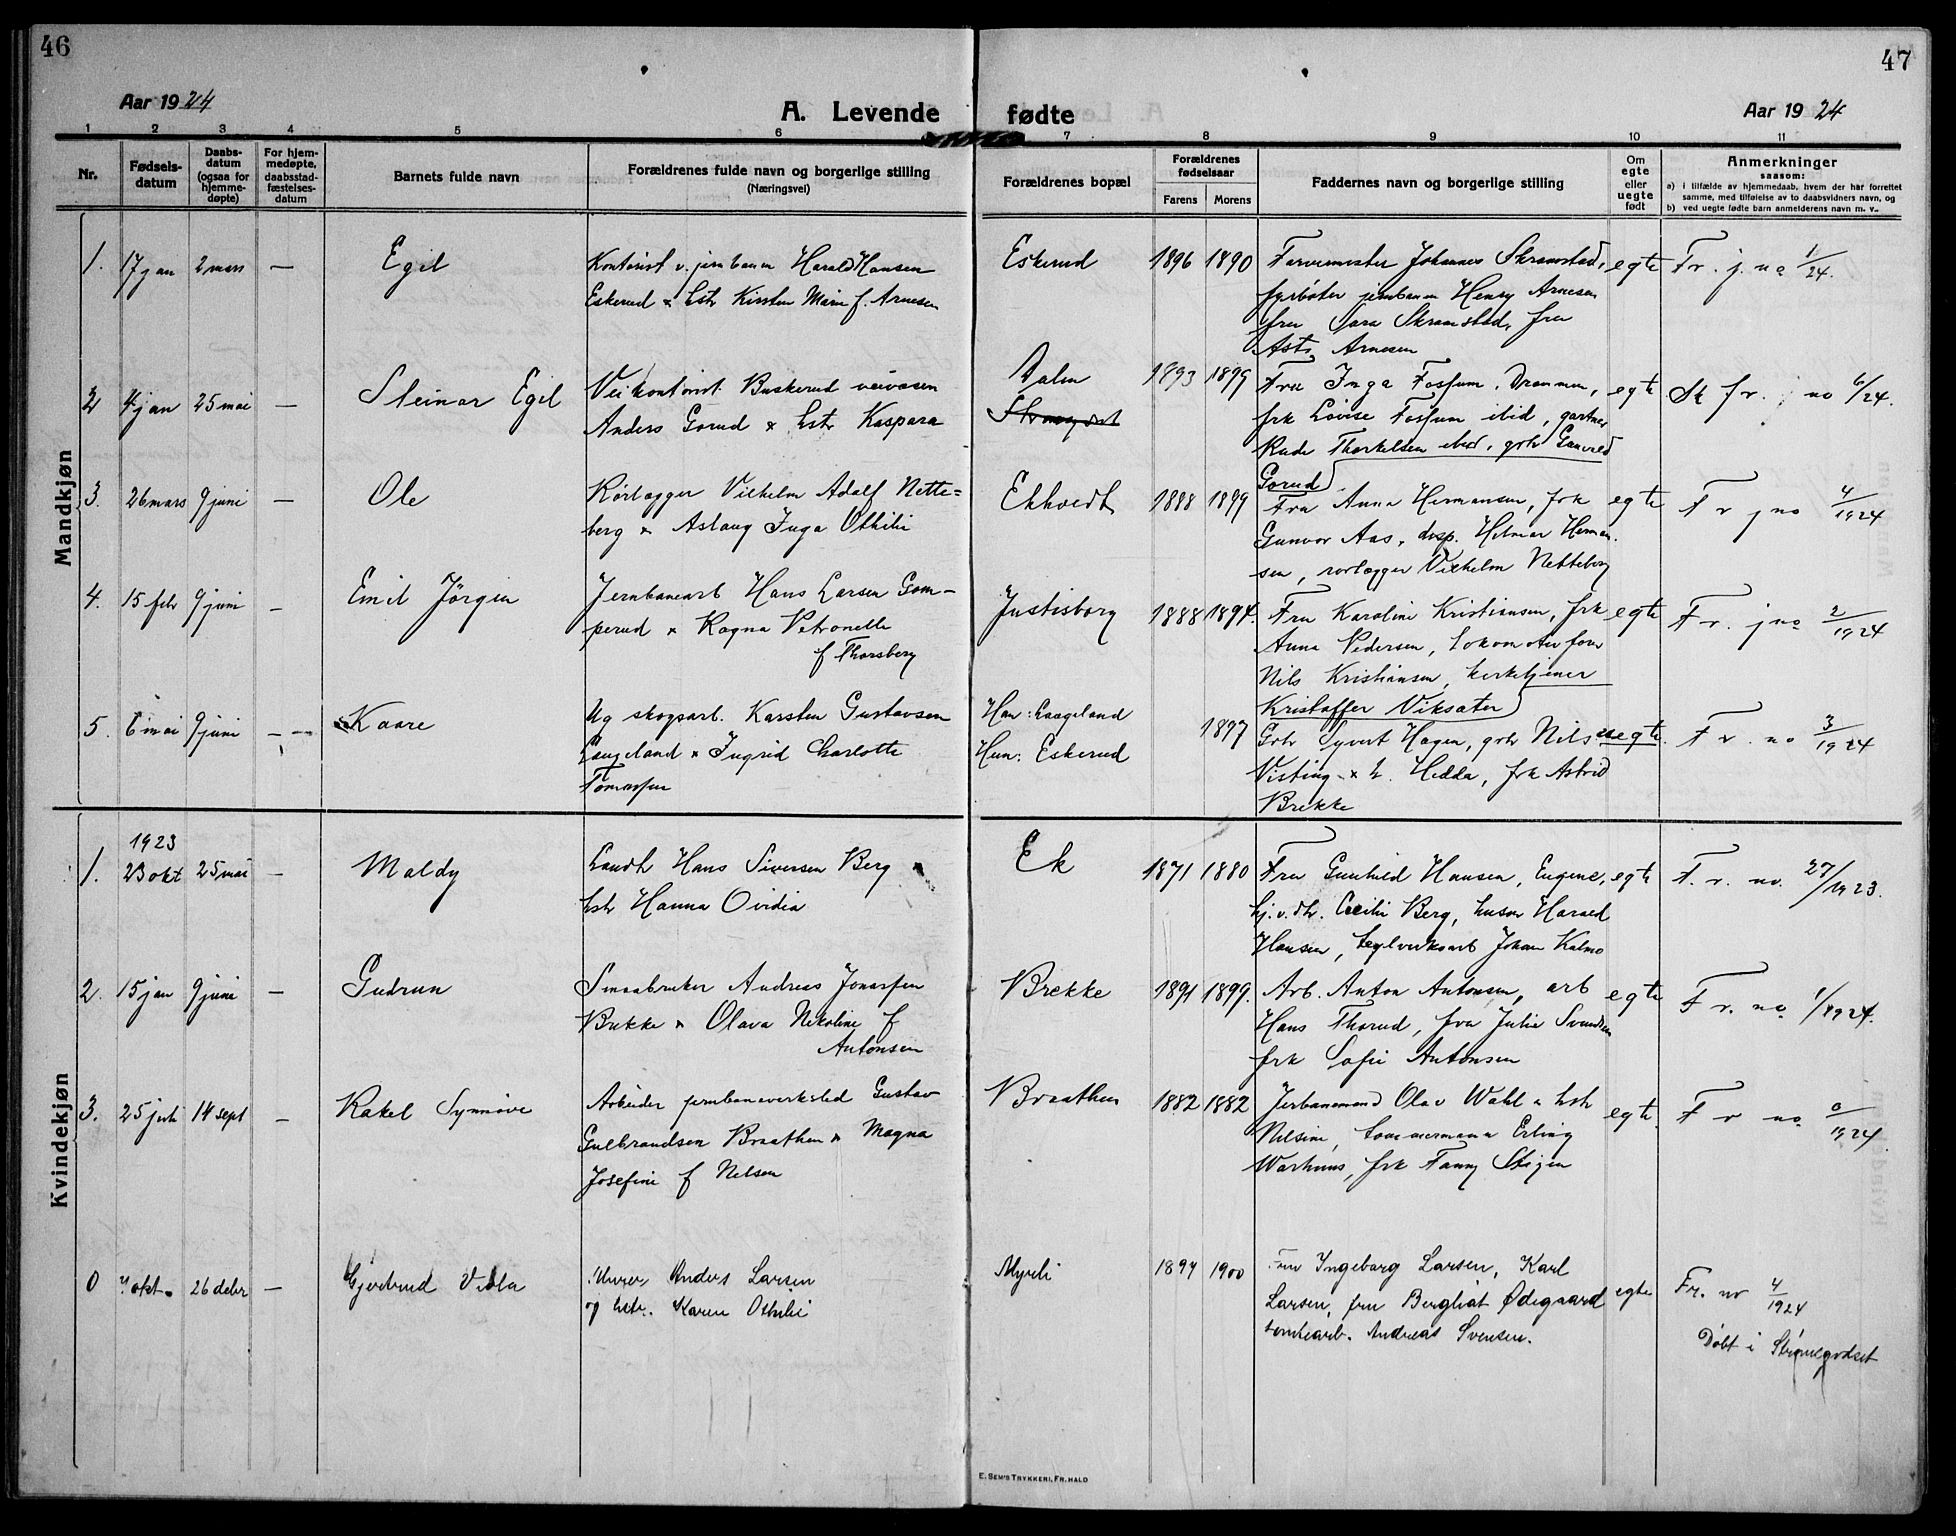 46
47
Aar 1924
A. Levende fødte
Aar 1924
1 2 3 4 5 6 7 8 9 10 11
Nr.
Fødsels-
datum
Daabs-
datum
(ogsaa for
hjemme-
døpte)
For hjem-
medøpte,
daabsstad-
fæstelses-
datum
Barnets fulde navn
Forældrenes fulde navn og borgerlige stilling
(Næringsvei)
Forældrenes bopæl
Forældrenes
fødselsaar
Farens Morens
Faddernes navn og borgerlige stilling
Om
egte
eller
uegte
født
Anmerkninger
saasom:
a) i tilfælde av hjemmedaab, hvem der har forrettet
samme, med tilføielse av to daabsvidners navn, og
b) ved uegte fødte barn anmelderens navn m. v..
Mandkjøn
1. 17 jan 2 mars — Egil
Kontorist v. jernbanen Harald Hansen
Eskerud & hstr Kirsten Marie f. Arnesen
Eskerud 1896 1890
Farvemester Johannes Skramstad,
fyrbøter jernbanen Henry Arnesen
fru Sara Skramstad, fru
Arnesen
egte Fr. j. no 1/24.
2 4 jan 25 mai — Steinar Egil
Veikontorist Buskerud veivæsen
Anders Gorud & hstr Kaspara
1893 1899
Fru Inga Fosfum, Drammen,
frk Lovise Fosfum ibid, gartner
Thorkelsen ibid, grbr
Gorud
egte no 6/24.
3. 26 mars 9 juni — Ole
Rørlægger Vilhelm Adolf Nette=
berg & Aslaug Inga Othilie
Ekholdt 1888 1899
Fru Anna Hermansen, frk
Gunvor Aas, disp. Hilmar Herman.
sen, rørlægger Vilhelm Netteberg
egte Fr j no 4/1924
4. 15 febr 9 juni — Emil Jørgen
Jernbanearb Hans Larsen Gom-
perud & Ragna Petronelle
f Thorsberg
Justisborg 1888 1894.
Fru Karoline Kristiansen, frk
Anna Pedersen,
Nils Kristiansen, kirketjener
Kristoffer Viksæter
egte Fr. j no 2/1924
5. 6 mai 9 juni — Kaare
Ug skogsarb. Karsten Gustavsen
Laugeland & Ingrid Charlotte
Tomassen
Han: Laugeland
Hun: Eskerud
1897
Grbr Syvert Hagen, grbr Nils
Visting & h. Hedda, frk Astrid
Brekke
uegte. Fr. no 3/1924
Kvindekjøn
1. 1923
23 okt 25 mai — Maldy
Landh Hans Siversen Berg &
hstr Hanna Ovidia
Ek 1871 1880
Fru Gunhild Hansen, Eugene,
Cecilie Berg, Harald
Hansen, teglverksarb Johan Kalmo
egte F. r. no. 27/1923.
2. 15 jan 9 juni — Gudrun
Smaabruker Andreas Jonassen
Brekke & Olava Nikoline f
Antonsen
Brekke 1891 1899.
Arb. Anton Antonsen, arb
Hans Thorud, fru Julie Svendsen
frk Sofie Antonsen
egte Fr. no 1/1924.
3. 25 juli 14 sept — Rakel Synnøve
Arbeider jernbaneverksted Gustav
Gulbrandsen Braathen & Magna
Josefine f Nelsen
Braathen 1882 1882
Jerbanemand Olav Wahl & hstr
Nilsine, tømmermann Erling
Warhuus, frk Fanny Stigen
egte. Fr no 0/1924
0 4 okt. 26 debr — Gjertrud Viola
Murer Anders Larsen
og hstr. Karen Othilie
Myrli 1894 1900
Fru Ingeborg Larsen, Karl
Larsen, fru Bergliot Ødegaard
tomtearb. Andreas Svensen.
egte Fr. no 4/1924
Døbt i Strømsgodset
E. SEM'S TRYKKERI, FR.HALD